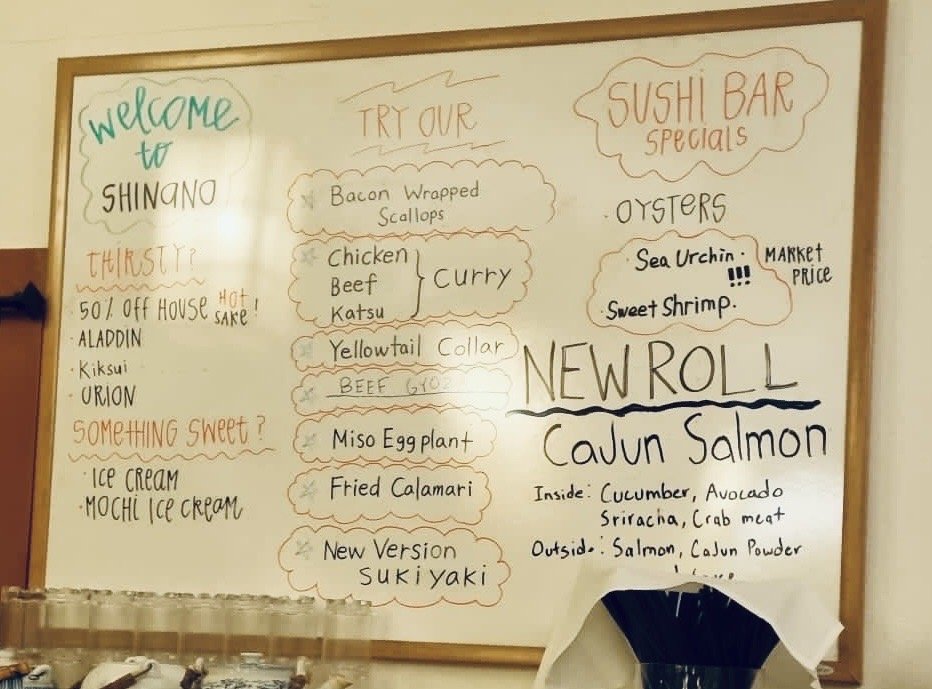 Welcome
to
SHINANO
THIRSTY?
· 50% OFF HOUSE HOT SAKE!
· ALADDIN
· Kiksui
· URION
SOMETHING SWEET?
· ICE CREAM
· MOCHI ICE CREAM
TRY OUR
Bacon Wrapped
Scallops
Chicken
Beef
Katsu
Curry
Yellowtail Collar
BEEF GYOZA
Miso Eggplant
Fried Calamari
New Version
SUKIYAKI
SUSHI BAR
SPECIALS
· OYSTERS
· Sea Urchin ·
!!!
· Sweet Shrimp.
MARKET
PRICE
NEW ROLL
CaJun Salmon
Inside: Cucumber, Avocado
Sriracha, Crab meat
Outside: Salmon, CaJun Powder